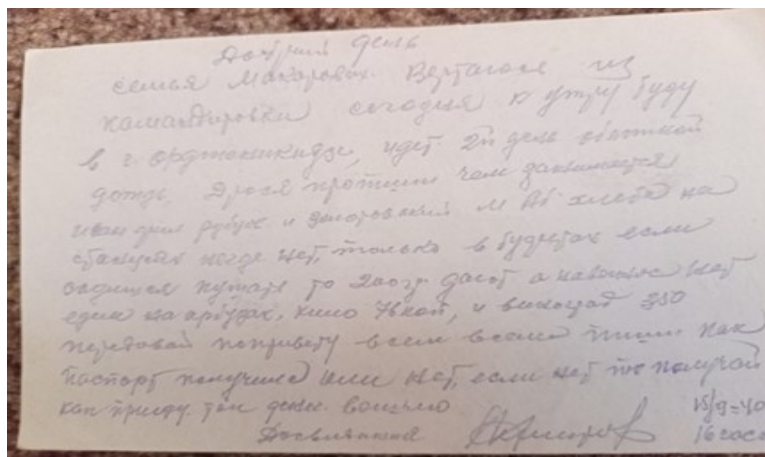 Добрый день
семья Макаровых. Вертаюсь из
командировки сегодня к утру буду
в г. орджоникидзе, идет 2й день
дождь, Дрося чем занимается
и м хлеба на
станциях негде нет, только в если
то 200гр дают а на нет
едим на арбузах, кило 7 коп, и виноград 350
передавай по привету всем всем пиши как
паспорт получила или нет, если нет то получай
как приеду там денег вышлю
Досвидания
15/9-40
16 часо